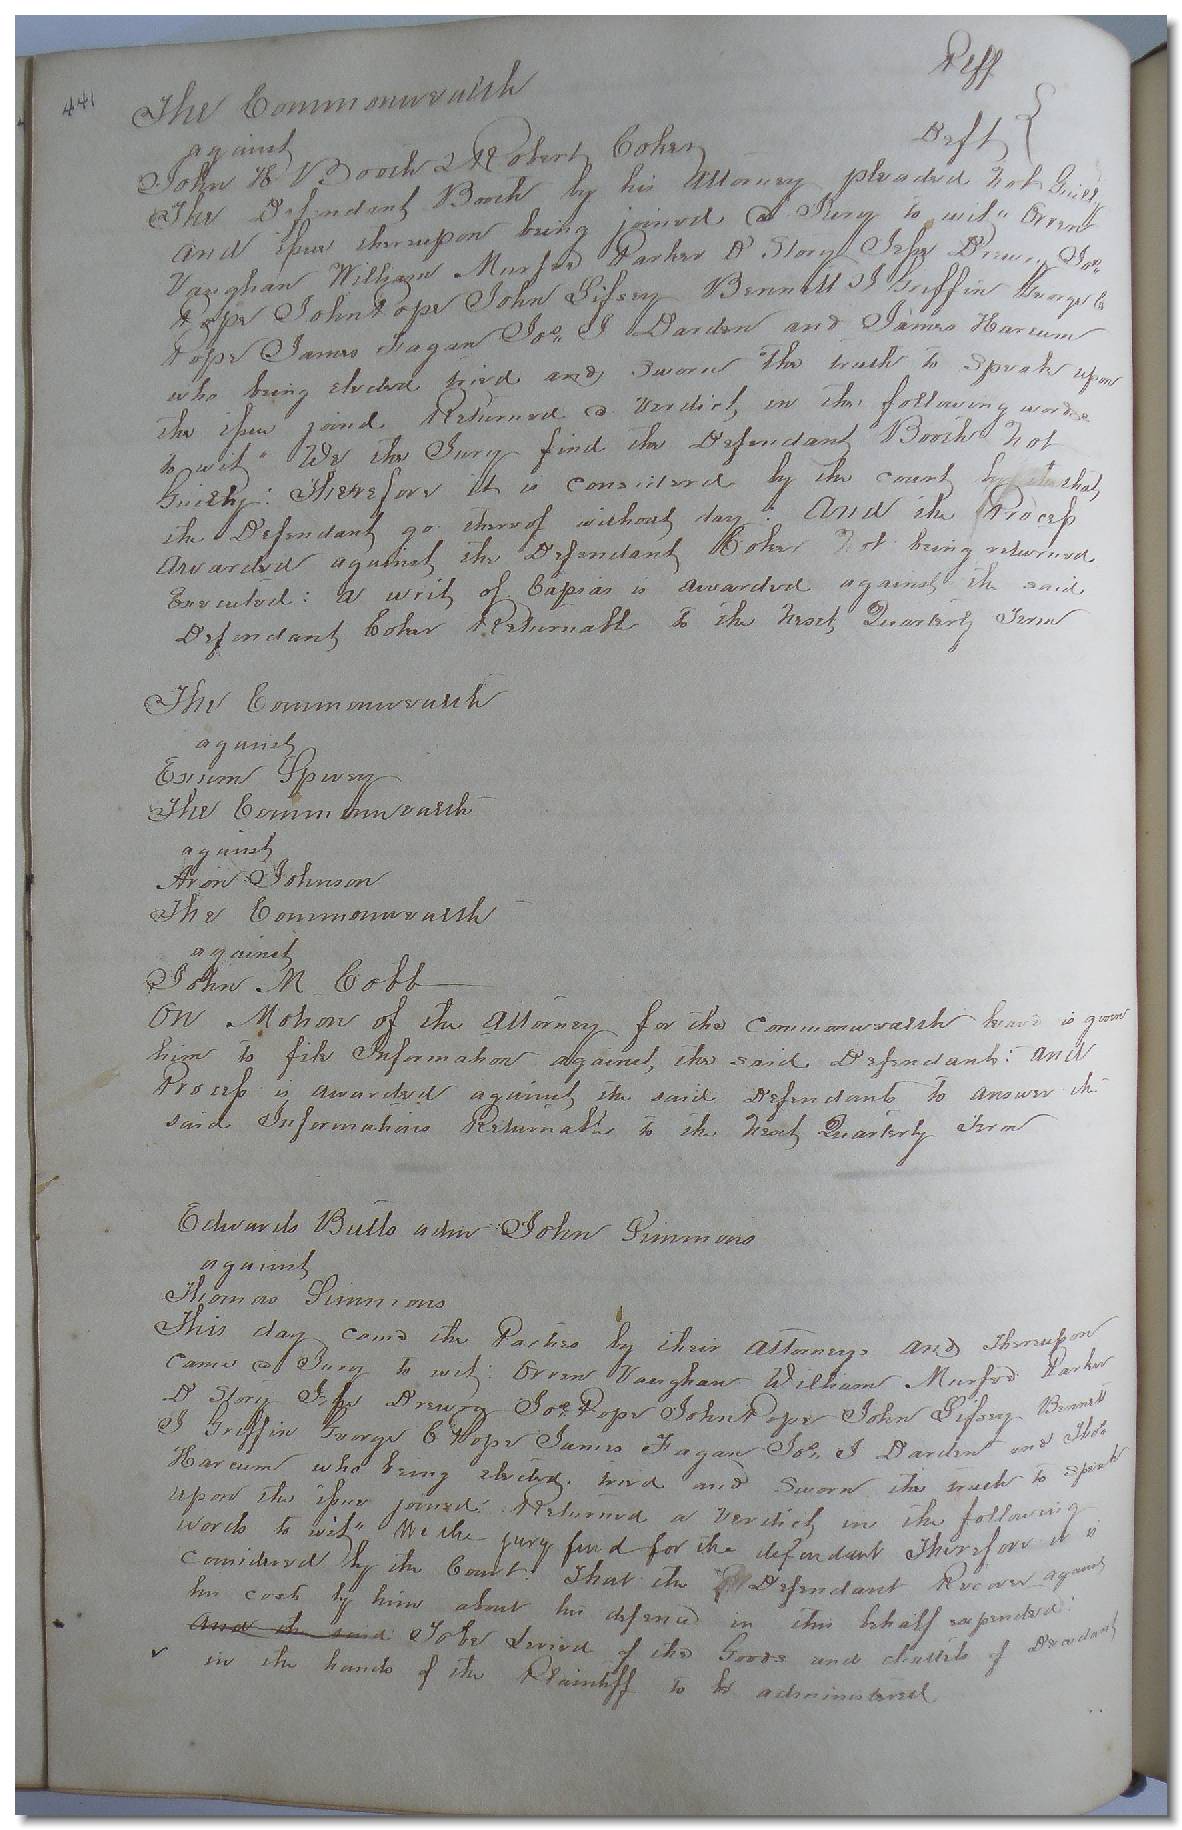 441
The Commonwealth Plff
against
John H Booth & Robert Coker Deft
The Defendant Booth by his Attorney pleaded Not Guilty
and Issue thereupon being joined a Jury to wit" Orren
Vaughan William Murfee Parker D Story Jesse Drewry Jos.
Pope John Pope John Sifsey Bennett J Griffin George C
Pope James Fagan Jos. J Darden and James Harcum
who being elected tried and sworn the truth to speak upon
the issue joined Returned a Verdict in the following words
to wit" We the Jury find the Defendant Booth Not
Guilty: Therefore it is considered by the court that
the Defendant go thereof without day: And the Process
awarded against the Defendant Coker Not being returned
Executed: a writ of Capias is awarded against the said
Defendant Coker Returnable to the Next Quarterly Term
The Commonwealth
against
Exum Spivey
The Commonwealth
against
Aron Johnson
The Commonwealth
against
John M Cobb
On Motion of the Attorney for the Commonwealth leave is given
him to file Information against the said Defendants: And
Process is awarded against the said Defendants to answer the
said Informations Returnable to the Next Quarterly Term
Edwards Butts adm John Simmons
against
Thomas Simmons
This day came the Parties by their attorneys and Thereupon
came a Jury to wit: Orren Vaughan William Murfee Parker
D Story Jesse Drewry Jos. Pope John Pope John Sifsey Bennett
J Griffin George C Pope James Fagan Jos. J Darden and
Harcum who being elected tried and sworn the truth to speak
upon the issue joined: Returned a Verdict in the following
words to wit" We the jury find for the defendant Therefore it is
considered by the Court: That the Defendant Recover against
his costs by him about his defence in this behalf expended:
And the said To be Levied of the Goods and chattels of Decedant
in the hands of the Plaintiff to be administered